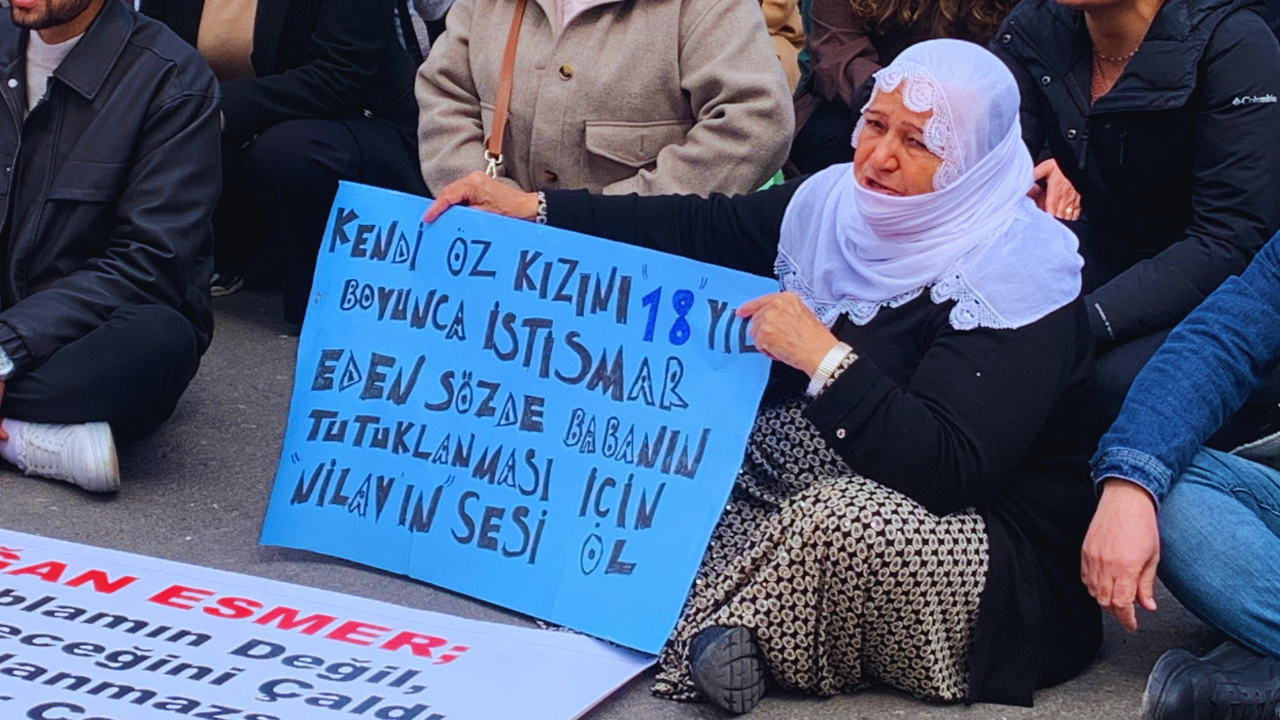 KENDİ ÖZ KIZINI "18" YIL
BOYUNCA İSTİSMAR
EDEN SÖZDE BABANIN
TUTUKLANMASI İÇİN
"NİLAY'IN" SESİ OL
ĞAN ESMER;
blamın Değil,
eceğini Çaldı
Columbia